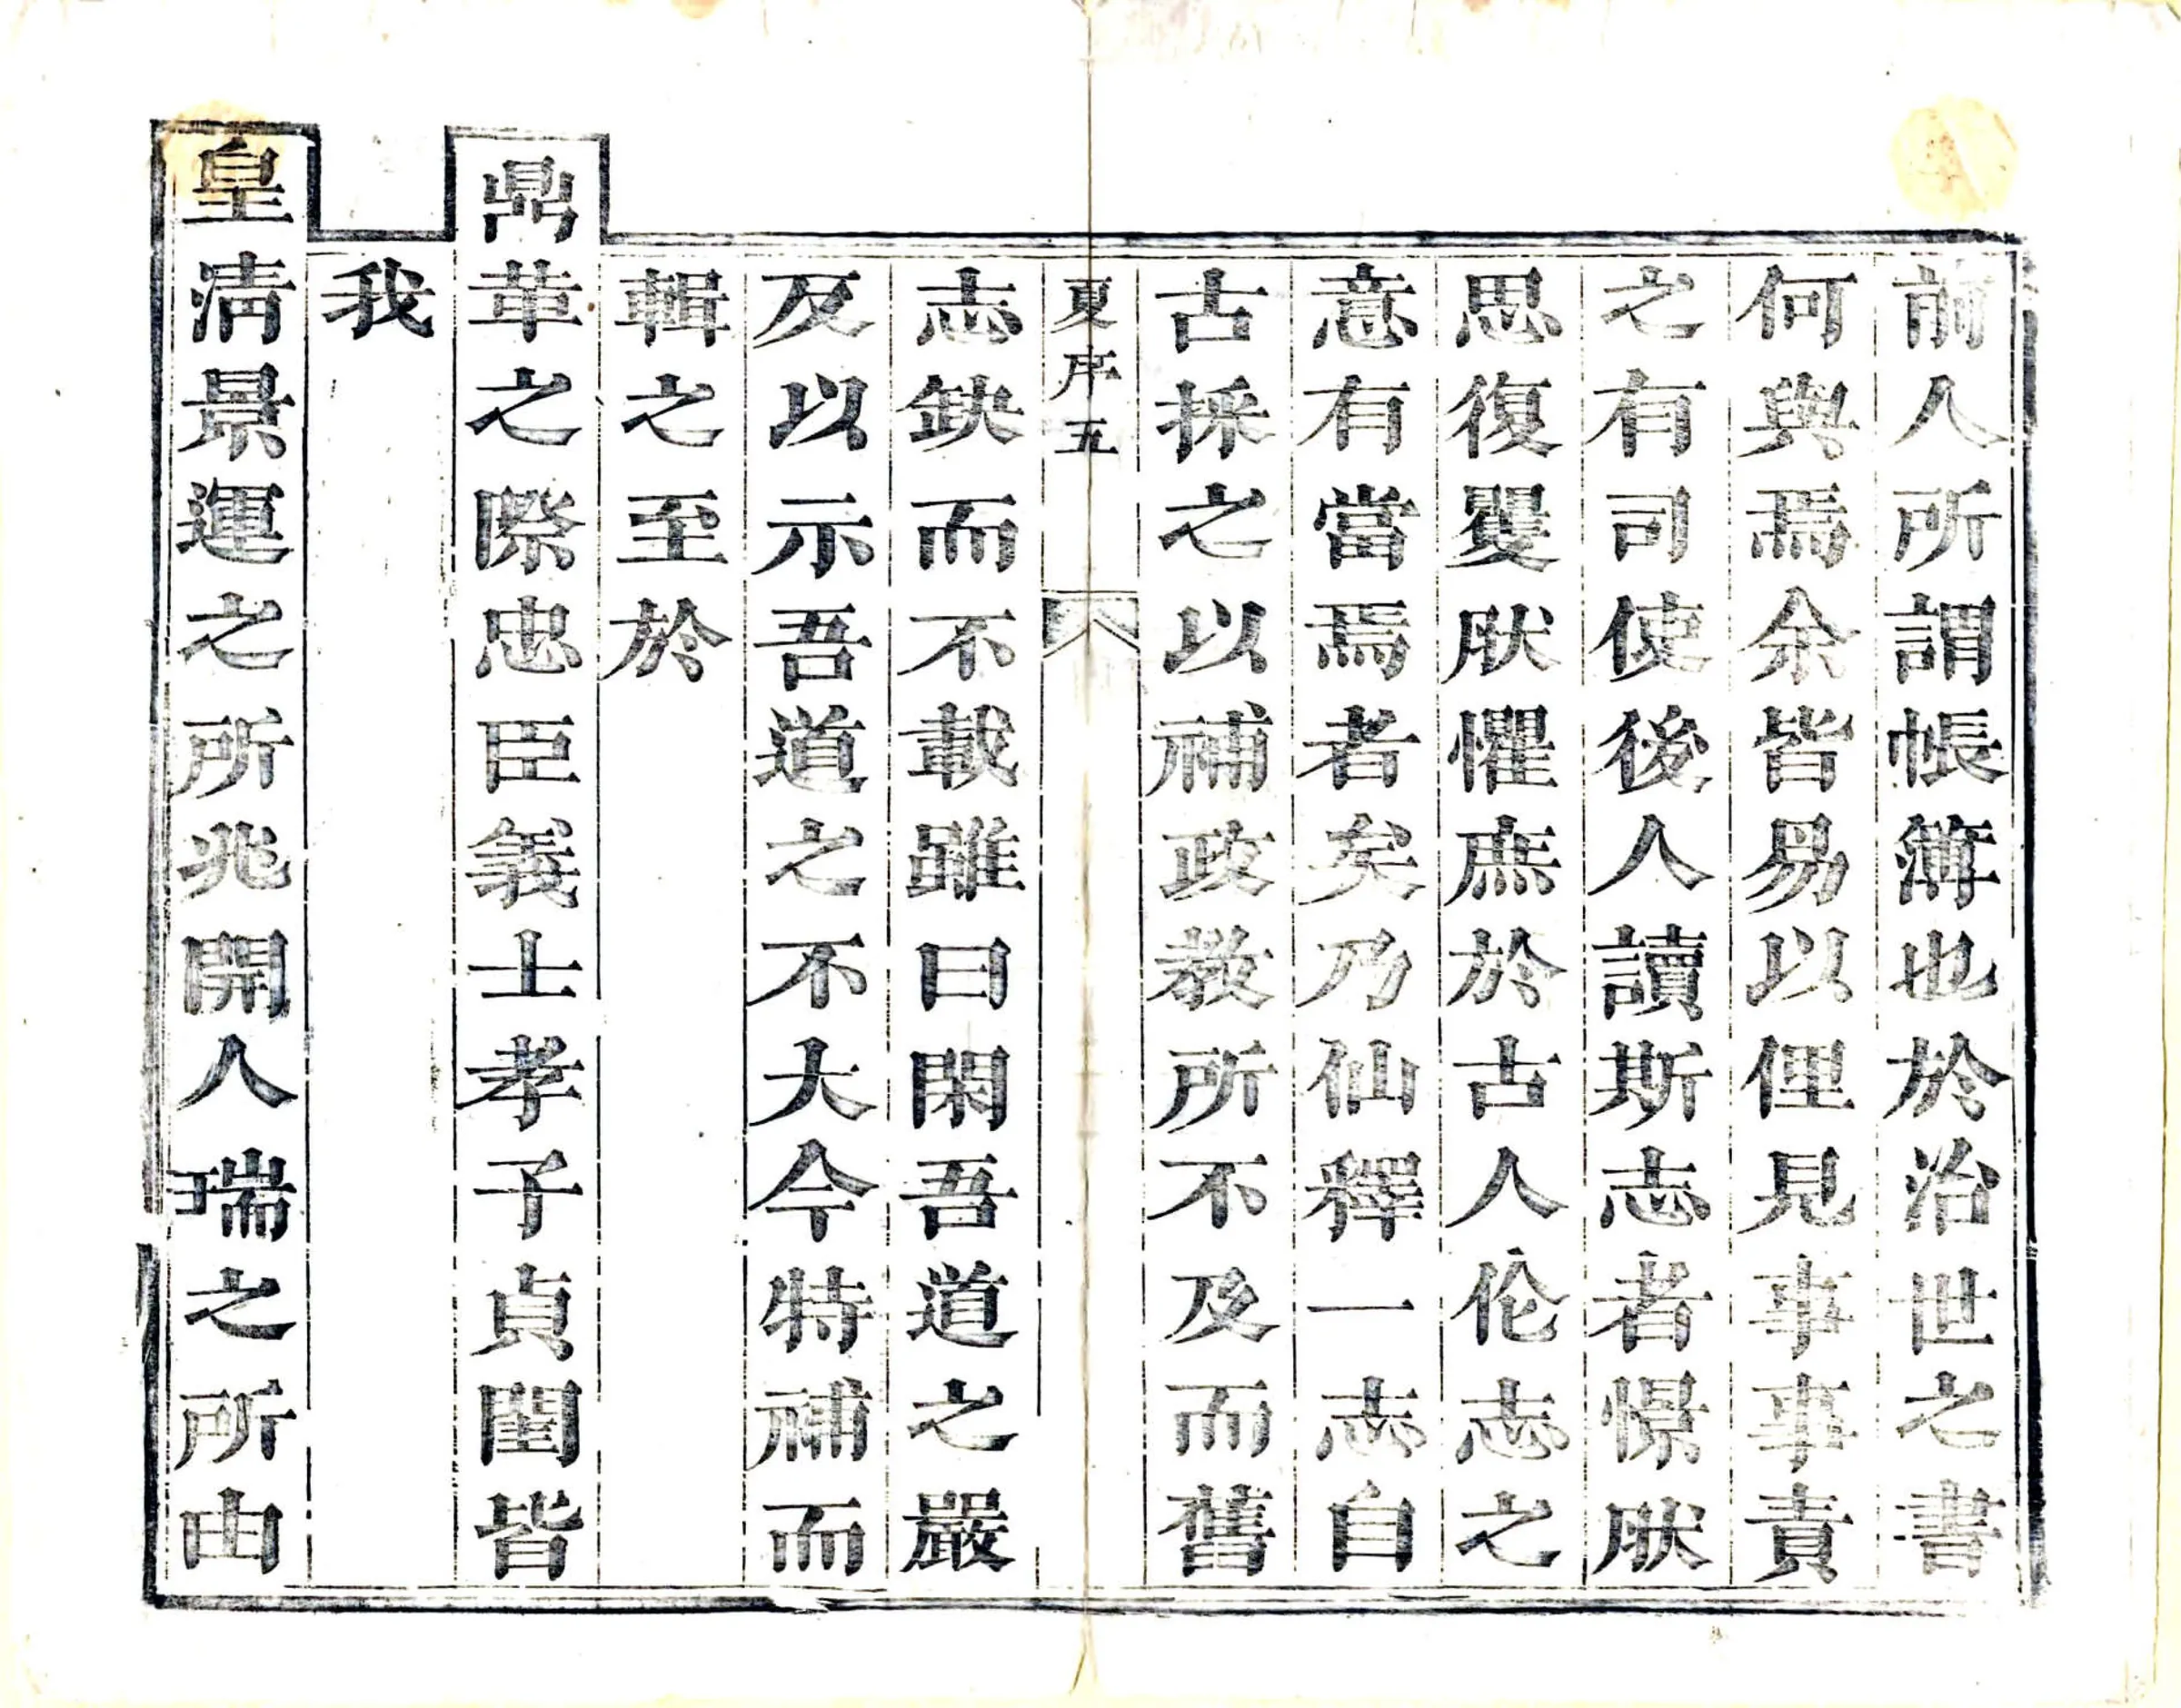 前人所謂帳簿也於治世之書
何與焉余皆易以俚見事事責
之有司使後人讀斯志者憬肰
思復矍肰懼庶於古人伦志之
意有當焉者矣乃仙釋一志自
古採之以補政教所不及而舊
夏序五
志缺而不載雖曰閑吾道之嚴
及以示吾道之不大今特補而
輯之至於
鼎革之際忠臣義士孝子貞閨皆
我
皇清景運之所兆開人瑞之所由